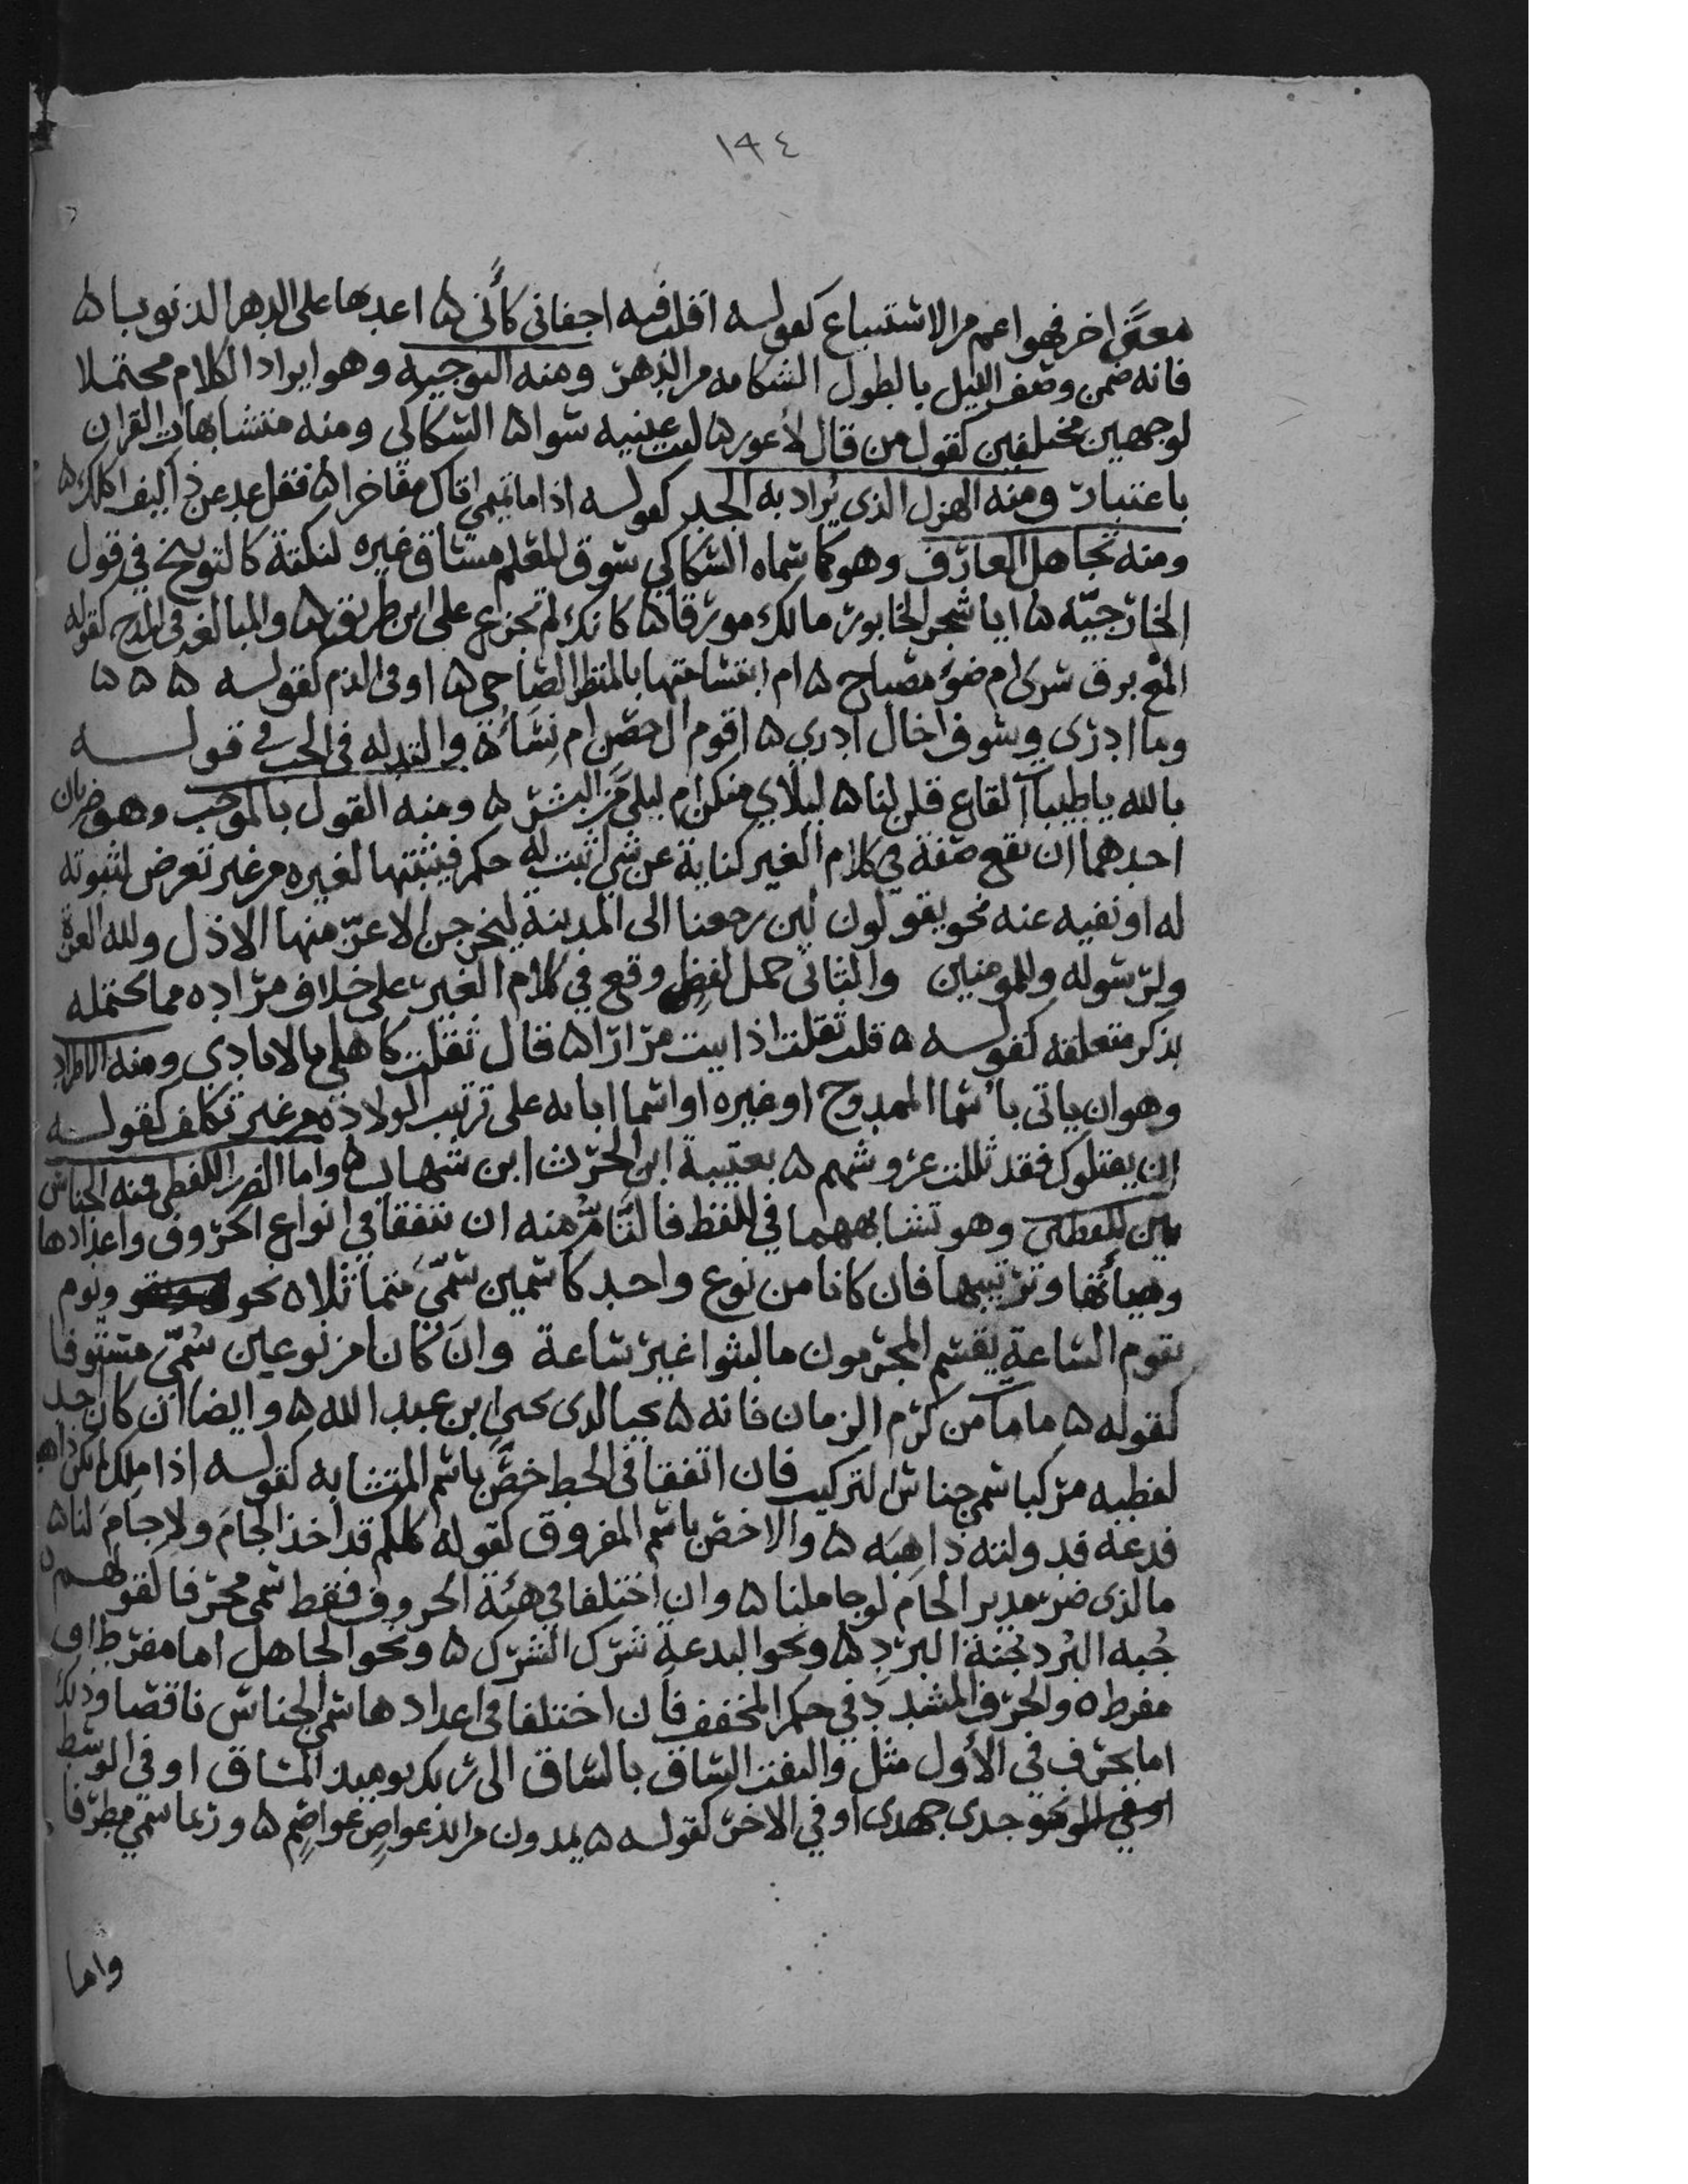 ١٩٤
معنًى اخر فهو اعم من الاستتباع كقوله اقلب فيه اجفاني كأني ۵ اعد بها على الدهر الذنوبا ۵
فانه ضمن وصف الليل بالطول الشكاية من الدهر ومنه التوجيه وهو ايراد الكلام محتملا
لوجهين مختلفين كقول من قال لأعور ۵ ليت عينيه سوا ۵ السكاكي ومنه متشابهات القران
باعتبار ومنه الهزل الذي يُراد به الجد كقوله اذا ما تميمي اتاك مفاخرا ۵ فقل عد عن ذا كيف اكلك ۵
ومنه تجاهل العارف وهو كما سماه السكاكي سوق المعلوم مساق غيره لنكتة كالتوبيخ في قول
الخارجيّه ۵ ايا شجر الخابور مالك مورقا ۵ كانك لم تجزع على ابن طريف ۵ والمبالغه في المدح كقوله
المع برق سرى ام ضؤ مصباح ۵ ام ابتسامتها بالمنظر الضاحي ۵ او في الذم كقوله ۵ ۵ ۵
وما ادري وسوف اخال ادري ۵ اقوم ال حصن ام نِسَاءُ ۵ والتدله في الحب في قوله
بالله يا ظبيات القاع قلن لنا ۵ ليلاي منكن ام ليلى من البشر ۵ ومنه القول بالموجب وهو ضربان
احدهما ان تقع صفة في كلام الغير كناية عن شي اثبت له حكم فيثبتها لغيره من غير تعرض لثبوته
له او نفيه عنه نحو يقولون لين رجعنا الى المدينة ليخرجن الاعزّ منها الاذل ولله العزة
ولرسوله وللمومنين والثاني حمل لفظ وقع في كلام الغير على خلاف مراده مما يحتمله
بذكر متعلقه كقوله ۵ قلت ثقلت اذ اتيت مرارا ۵ قال ثقلت كاهلي بالايادي ومنه الاطراد
وهو ان ياتي بأسما الممدوح او غيره او اسما ابايه على ترتيب الولادة من غير تكلف كقوله
ان يقتلوك فقد ثللت عروشهم ۵ بعتيبة ابن الحرث ابن شهاب ۵ واما الضرب اللفظي فمنه الجناس
بين اللفظين وهو تشابههما في اللفظ فالتّامّ منه ان يتفقا في انواع الحروف واعدادها
وهيأتها وترتيبها فان كانا من نوع واحد كاسمين سُمّيَ متماثلا ۵ نحو ويوم
تقوم الساعة يقسم المجرمون ما لبثوا غير ساعة وان كانا من نوعين سُمّيَ مستوفا
كقوله ۵ مامات من كرم الزمان فانه ۵ يحيا لدى يحيى ابن عبد الله ۵ وايضا ان كان احد
لفظيه مركبا سمي جناس التركيب فان اتفقا في الخط خصّ باسم المتشابه كقوله اذا ملك لم يكن ذاهبه
فدعه فدولته ذاهِبَه ۵ والا خص باسم المفروق كقوله كلكم قد اخذ الجامَ ولا جامَ لنا ۵
ما لذي ضر مدير الجام لو جاملنا ۵ وان اختلفا في هيئة الحروف فقط سمي محرفا كقولهم
جُبه البُرد جنة البَرْدِ ۵ ونحو البدعة شَرَك الشرك ۵ ونحو الجاهل اما مفرط او
مفرط ۵ والحرف المشدد في حكم المخفف فان اختلفا في اعدادها سمي الجناس ناقصا وذلك
اما بحرف في الأول مثل والتفت الساق بالساق الى ربك يوميذ المساق او في الوسط
نحو جدى جهدى او في الاخر كقوله ۵ يمدون من ايد عواصٍ عواصم ۵ وربما سمي مطرفا
واما